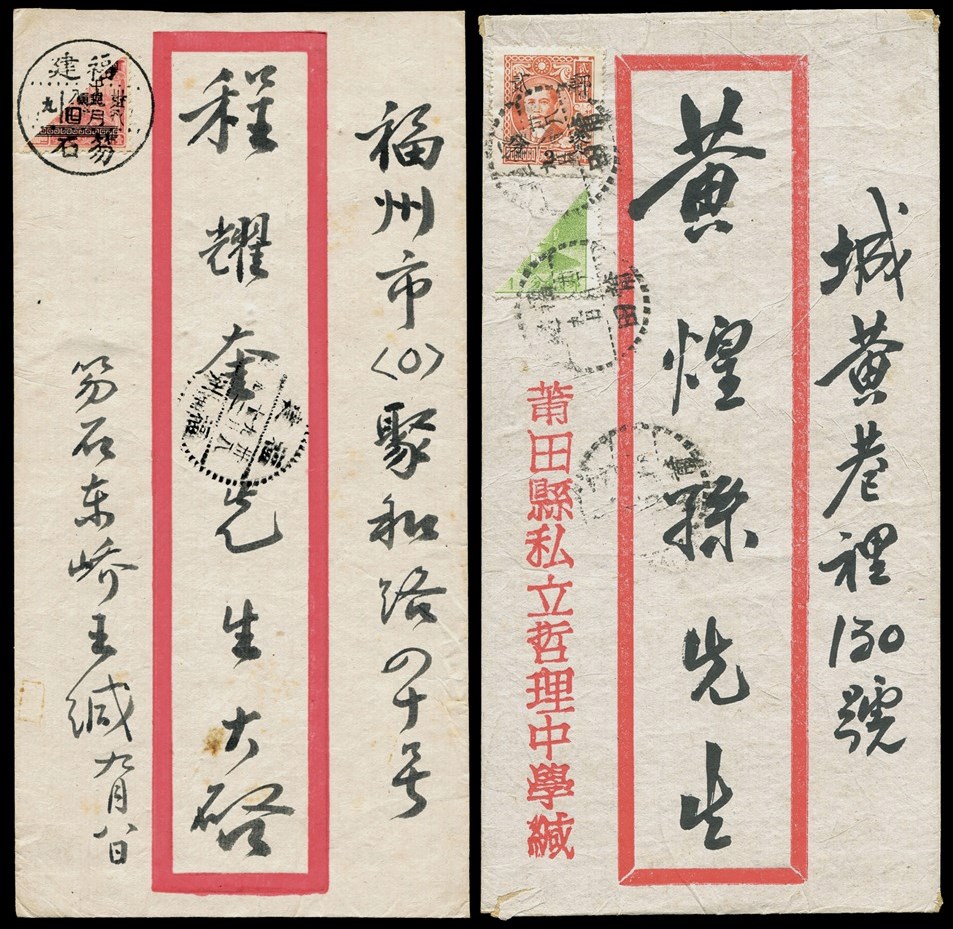 福州市〈0〉聚和路四十号
程耀奎先生大啓
笏石东峤王缄九月八日
福建
笏石
城黄巷裡130號
黄煌孫先生
莆田縣私立哲理中學緘
莆田
莆田